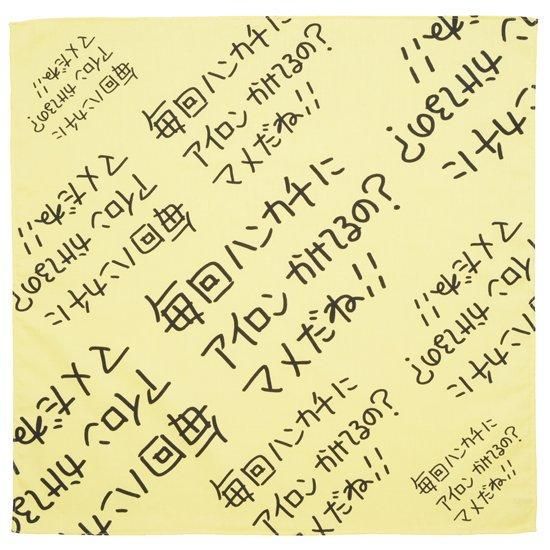 毎回ハンカチに
アイロン かけてるの?
マメだね!!
毎回ハンカチに
アイロン かけてるの?
マメだね!!
かけてるの?
チに
だね!!
毎回ハンカチに
アイロン かけてるの?
マメだね!!
毎回ハンカチに
アイロン かけてるの?
マメだね!!
ハンカチに
かけてるの?
マメだね!!
毎回ハンカチに
アイロン かけて
マメだね
毎回ハンカチに
アイロン かけてるの?
マメだね!!
毎回ハンカチに
アイロン かけてるの?
マメだね!!